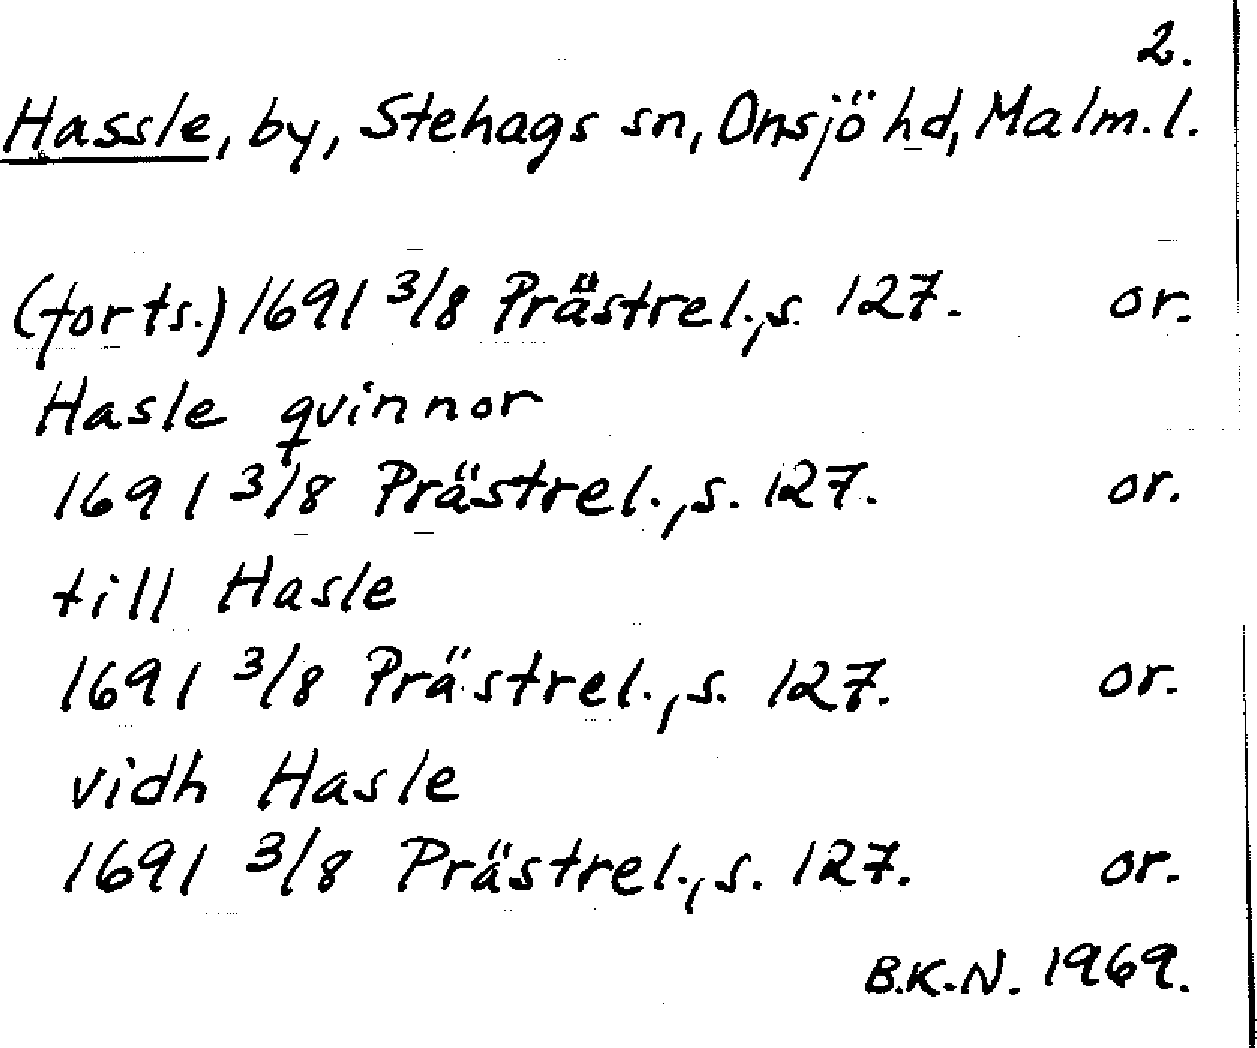 2.
Hassle, by, Stehags sn, Onsjö hd, Malm. l.
(forts.) 1691 3/8 Prästrel., s. 127. or.
Hasle qvinnor
1691 3/8 Prästrel., s. 127. or.
till Hasle
1691 3/8 Prästrel., s. 127. or.
vidh Hasle
1691 3/8 Prästrel., s. 127. or.
B.K.-N. 1969.